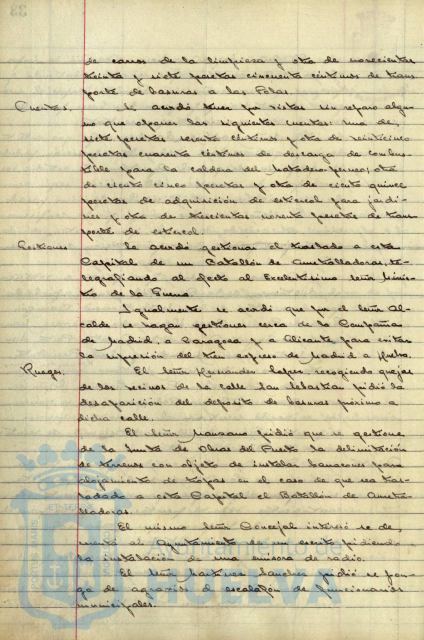 de carros de la limpieza y otra de novecientas
treinta y siete pesetas cincuenta céntimos de trans
porte de basuras a las Pozas.
Cuentas.
Se acordó tener por vistas sin reparo algu-
no que oponer las siguientes cuentas: una de
siete pesetas sesenta céntimos y otra de veinticinco
pesetas cuarenta céntimos de descarga de combus-
tible para la caldera del Matadero; otra
de ciento cinco pesetas y otra de ciento quince
pesetas de adquisición de estiercol para jardi-
nes y otra de trescientas noventa pesetas de trans-
porte de estiercol.
Gestiones
Se acordó gestionar el traslado a esta
Capital de un Batallón de Ametralladoras, te-
legrafiando al efecto al Excelentísimo señor Minis-
tro de la Guerra.
Igualmente se acordó que por el señor Al-
calde se hagan gestiones cerca de la Compañia
de Madrid, a Zaragoza y a Alicante para evitar
la supresión del tren expreso de Madrid a Huelva.
Ruegos.
El señor Hernandez Lopez, recogiendo quejas
de los vecinos de la calle San Sebastian pidió la
desaparición del deposito de basuras próximo a
dicha calle.
El señor Manzano pidió que se gestione
de la Junta de Obras del Puerto la delimitación
de terrenos con objeto de instalar barracones para
alojamiento de tropas en el caso de que sea tras-
ladado a esta Capital el Batallón de Ametra-
lladoras.
El mismo señor Concejal interesó se de
cuenta al Ayuntamiento de un escrito pidiendo
la instalación de una emisora de radio.
El señor Martinez Sanchez pidió se pon-
ga de agravios el escalafón de funcionarios
municipales.
HUELVA